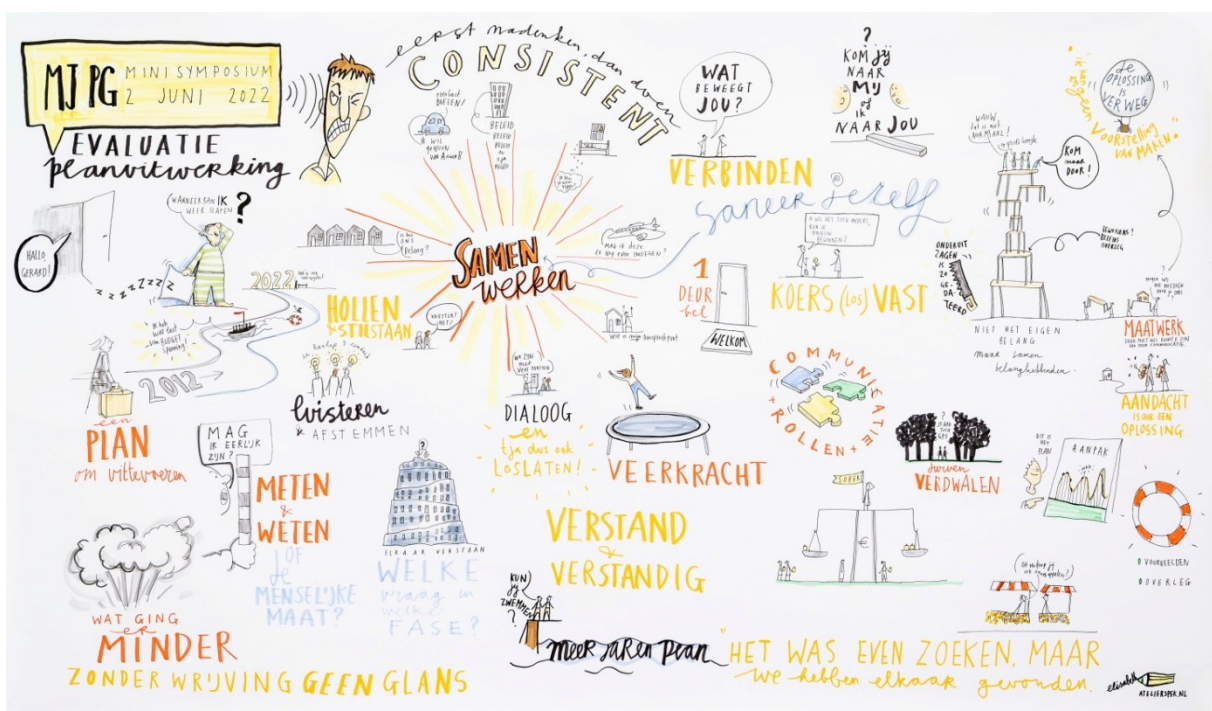 MJPG MINISYMPOSIUM
2 JUNI 2022
EVALUATIE
planuitwerking
eerst nadenken, dan doen
CONSISTENT
BELEID
WAT
BEWEEGT
JOU?
VERBINDEN
?
KOM jij
NAAR
MIJ
of
ik
NAAR JOU
"ik kan
er geen
Voorstelling
VAN MAKEN."
de
OPLOSSING
IS
VER WEG
KOM
maar
DOOR!
saneer jezelf
HALLO,
GERARD!
WANNEER KAN IK
WEER SLAPEN
?
zzzzzzzz
2022
2012
HOLLEN
& STILSTAAN
SAMEN
werken
1
DEUR
bel
WELKOM
KOERS (los) VAST
ONDERUIT
ZAGEN
IS
ZO
GE-
DA-
TEERD
NIET HET EIGEN
BELANG
maar samen
belanghebbenden.
MAATWERK
AANDACHT
IS OOK EEN
OPLOSSING
een
PLAN
om uit te voeren
luisteren
& AFSTEMMEN
DIALOOG
en
tja dus ook
LOSLATEN!
VEERKRACHT
COMMUNICATIE
+ ROLLEN +
durven
VERDWALEN
DIT IS
HET
PLAN
AANPAK
MAG
IK EERLIJK
ZIJN?
METEN
&
WETEN
OF
de
MENSELIJKE
MAAT?
ELKAAR VERSTAAN
WELKE
vraag in
welke
FASE?
VERSTAND
&
VERSTANDIG
SOBER
€
VOORBEELDEN
OVERLEG
WAT GING
er
MINDER
KUN
jij
ZWEMMEN
?
meer jaren plan
ZONDER WRIJVING GEEN GLANS
"HET WAS EVEN ZOEKEN, MAAR
we hebben elkaar gevonden.
elisabeth
ATELIERSPEK.NL